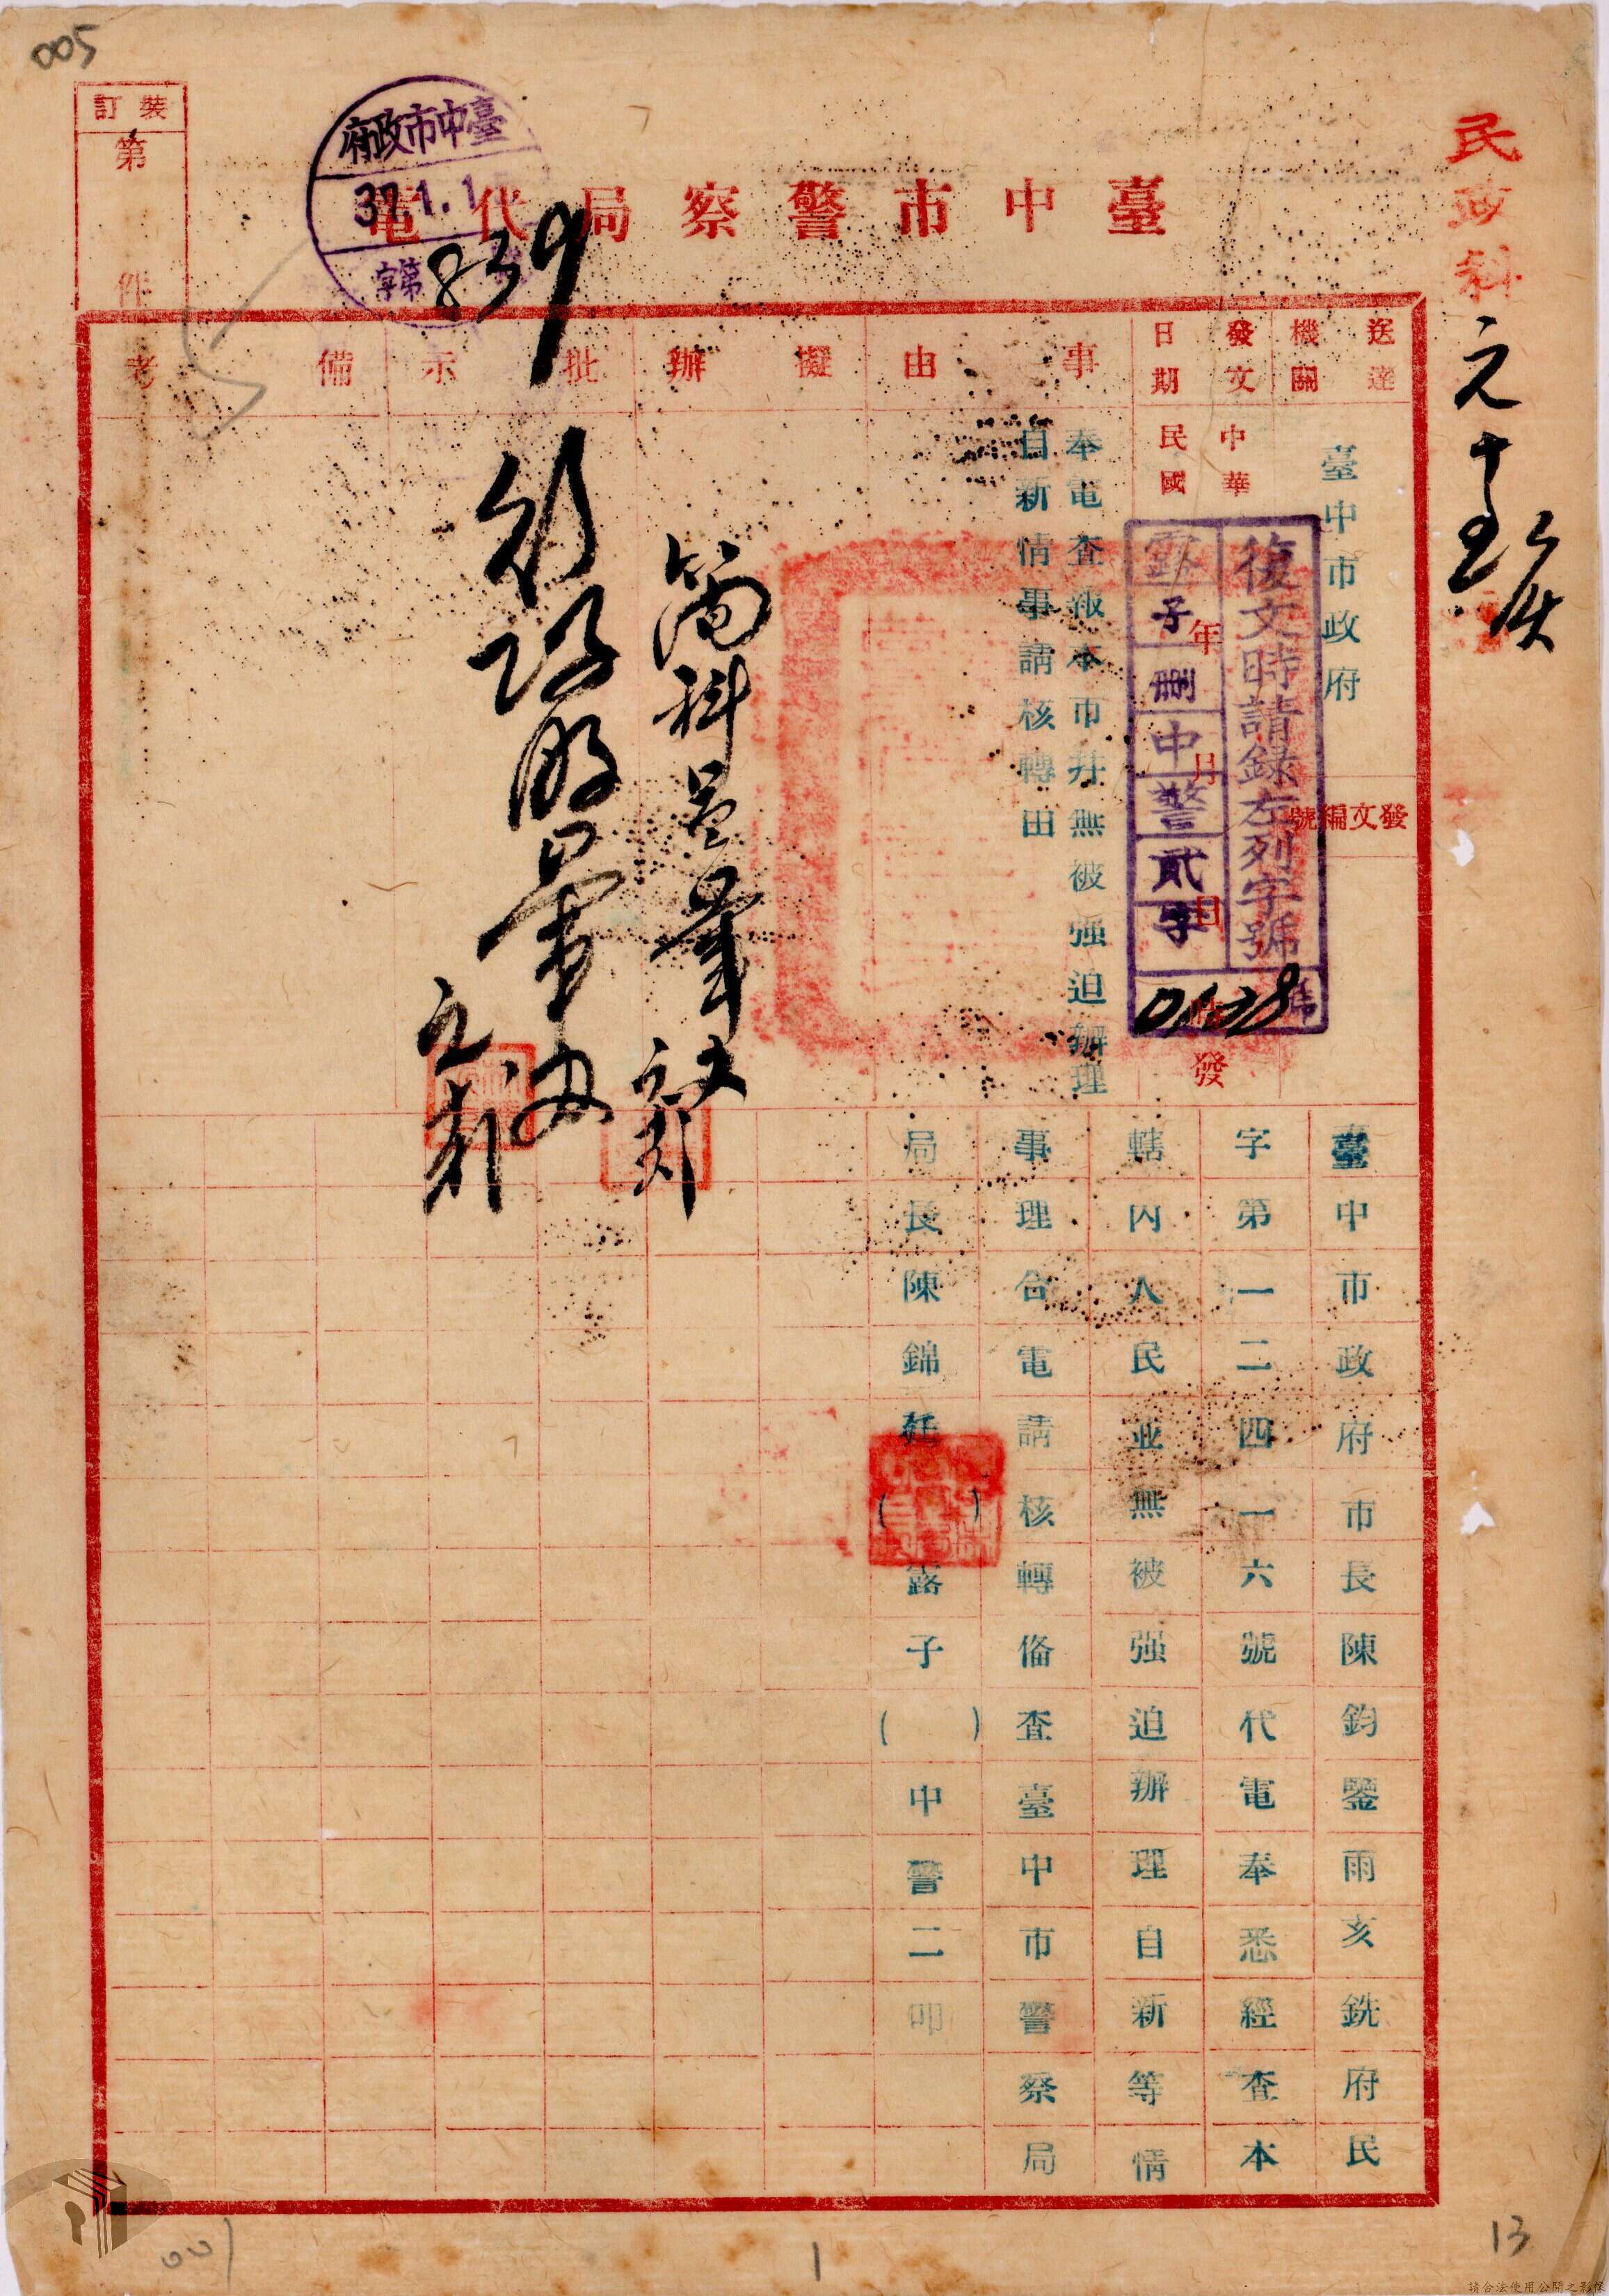 005
裝訂
第
件
臺中市政府
37.1.1
字第839
臺中市警察局代電
民政科
元
送達機關
臺中市政府
發文編號
發文日期
中華民國
年
月
日
發
復文時請錄左列字號
露子刪中警貳字
0138號
事由
奉電查報本市并無被强迫辦理
自新情事請核轉由
擬辦
批示
備考
臺中市政府市長陳鈞鑒雨亥銑府民
字第一二四一六號代電奉悉經查本
轄內人民並無被强迫辦理自新等情
事理合電請核轉俻查臺中市警察局
局長陳錦()露子()中警二叩
001
1
13
請合法使用公開之影像